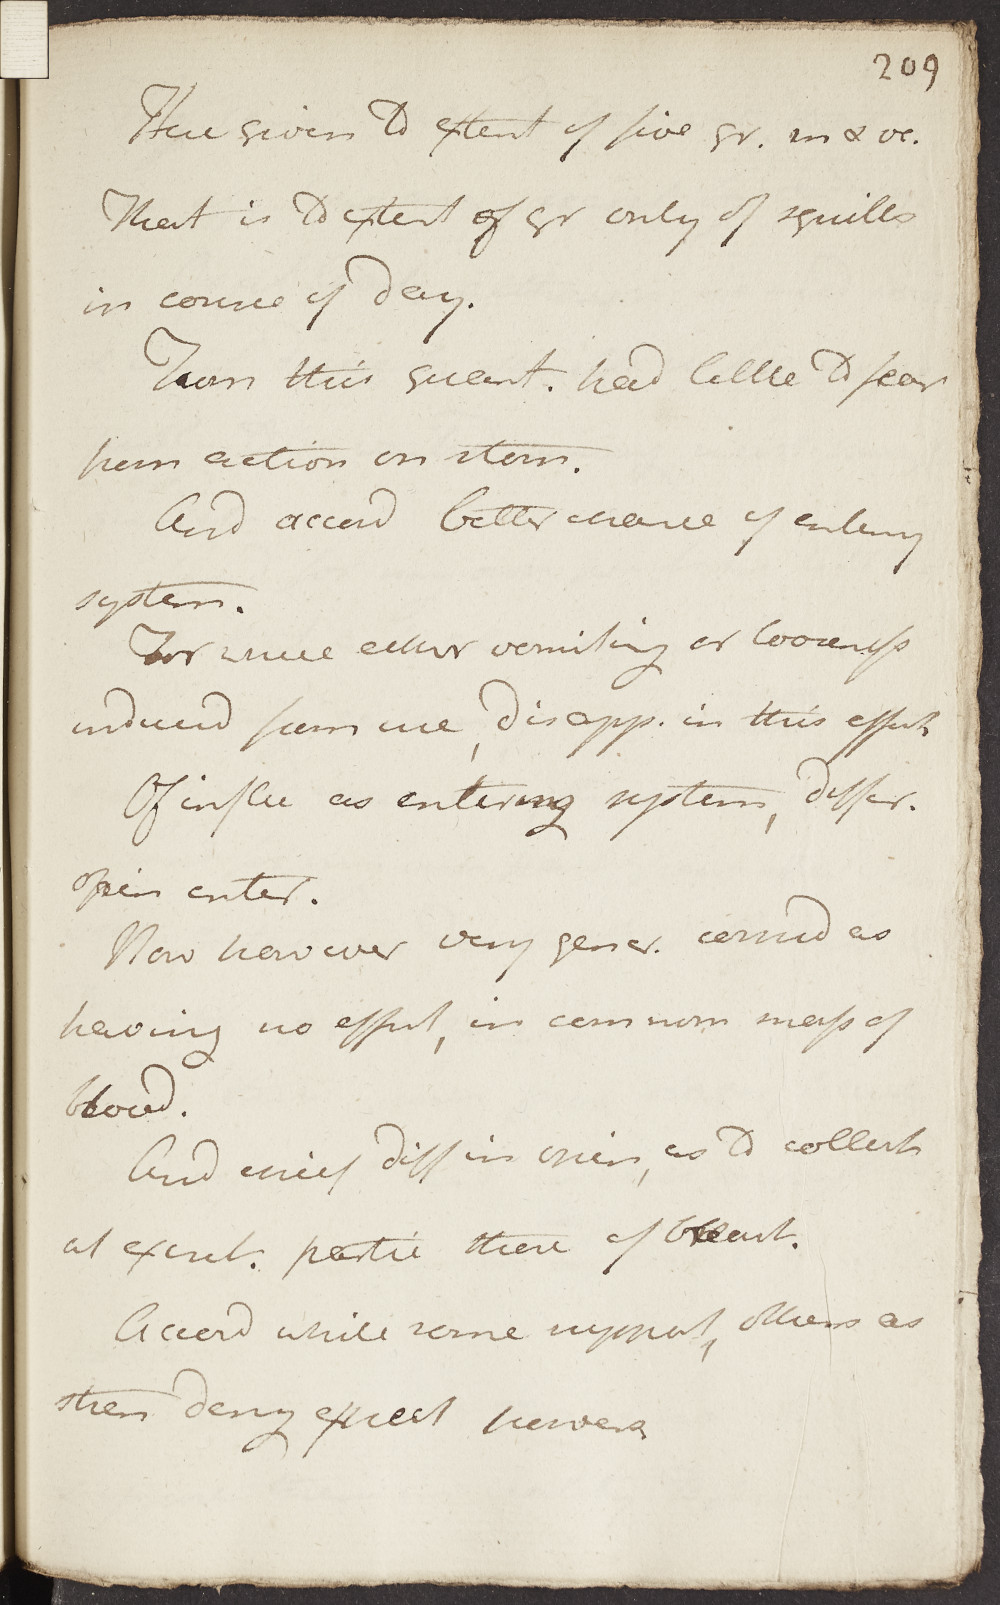 209
Here given to extent of five gr. m & ve.
That is to extent of gr only of squills
in course of day.
From this quant. had little to fear
from action on stom.
And accord better chance of entering
system.
For where either vomiting or looseness
induced from use, disapp. in this effect
Of influe as entering system, differ.
opin enter.
Now however very gener. consid as
having no effect, in common mass of
blood.
And chief diff in opin, as to collect
at extent. partic there of breast.
Accord while some support, others as
stren deny expect powers